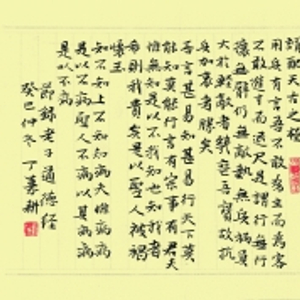 謂配天古之極
用兵有言吾不敢為主而為客
不敢進寸而退尺是謂行無行
攘無臂仍無敵執無兵禍莫
大於輕敵者幾喪吾寶故抗
兵加哀者勝矣
吾言甚易知甚易行天下莫
能知莫能行言有宗事有君夫
惟無知是以不我知也知我者
希則我貴矣是以聖人被褐
懷玉
知不知上不知知病夫惟病病
是以不病聖人不病以其病病
是以不病
節錄老子道德經
癸巳仲冬 丁嘉耕